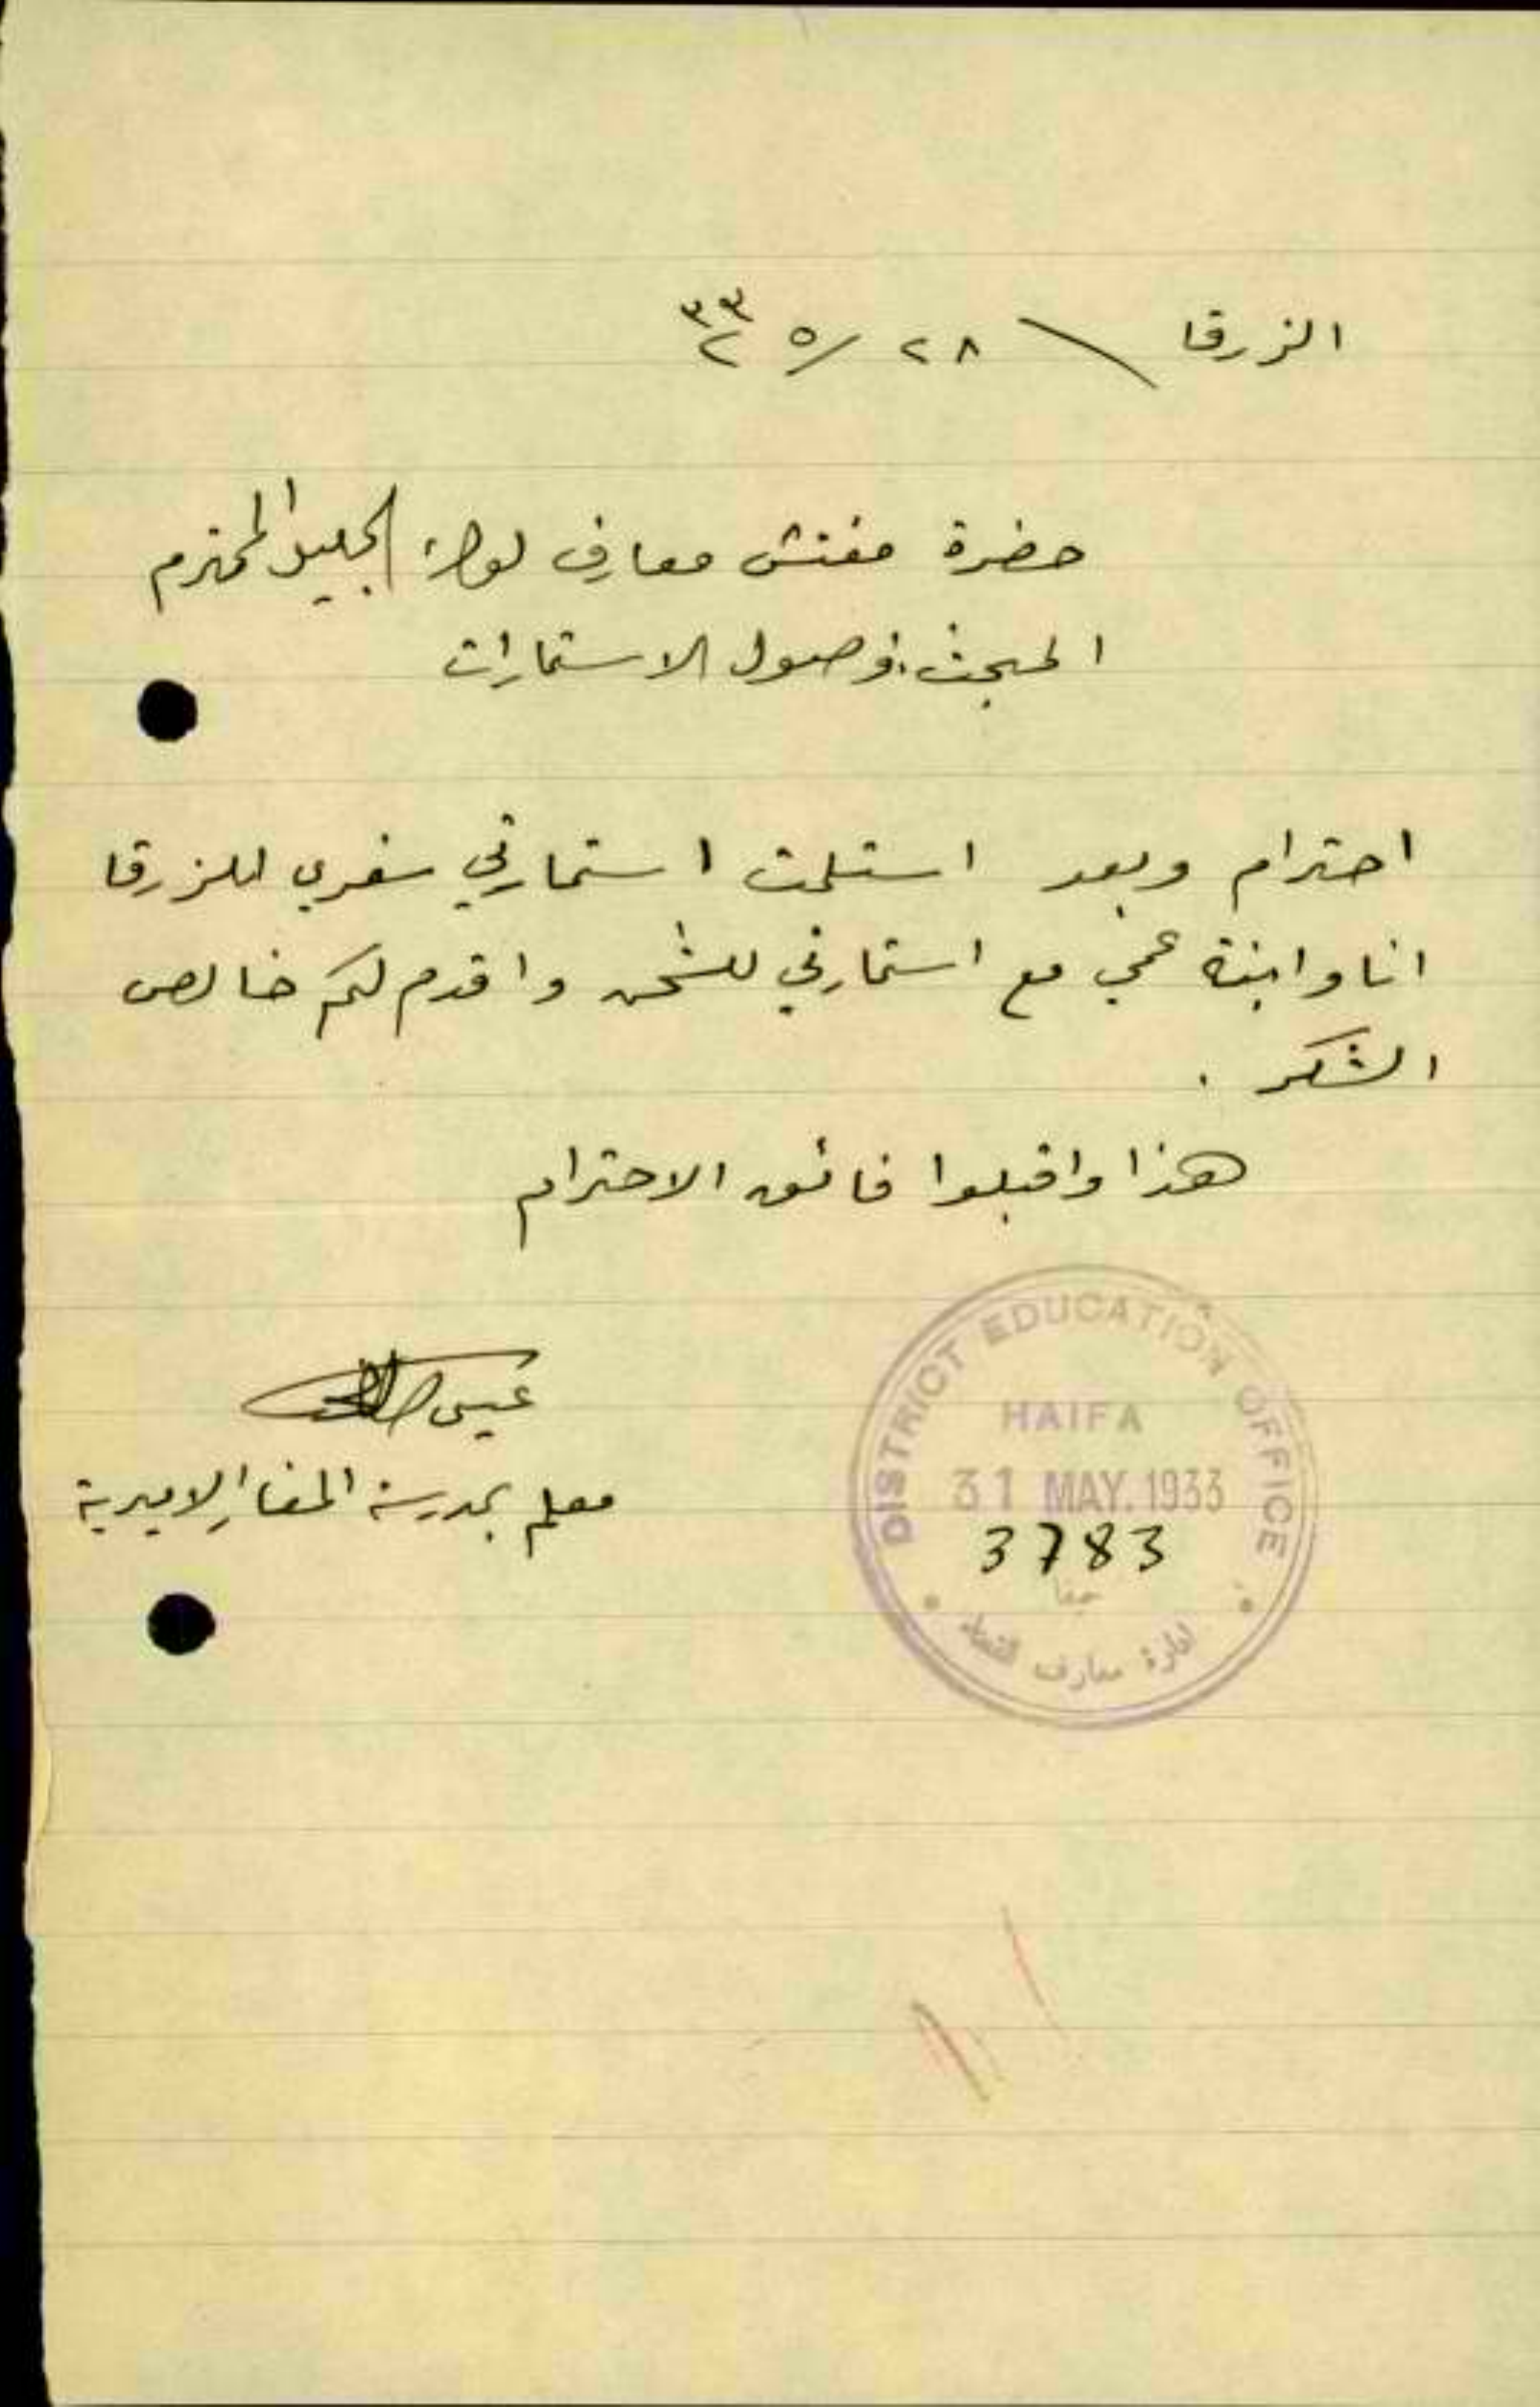 الزرقا \ ٢٨ / ٥ ٣٣
حضرة مفتش معارف لواء الجليل المحترم
المبحث: وصول الاستمارات
احترام وبعد استلمت استمارتي سفري للزرقا
انا وابنة عمي مع استمارتي للشحن واقدم لكم خالص
الشكر .
هذا واقبلوا فائق الاحترام
عيسى
معلم بمدرسة المغار الاميرية
DISTRICT EDUCATION OFFICE
HAIFA
31 MAY. 1933
3783
حيفا
ادارة معارف القضاء